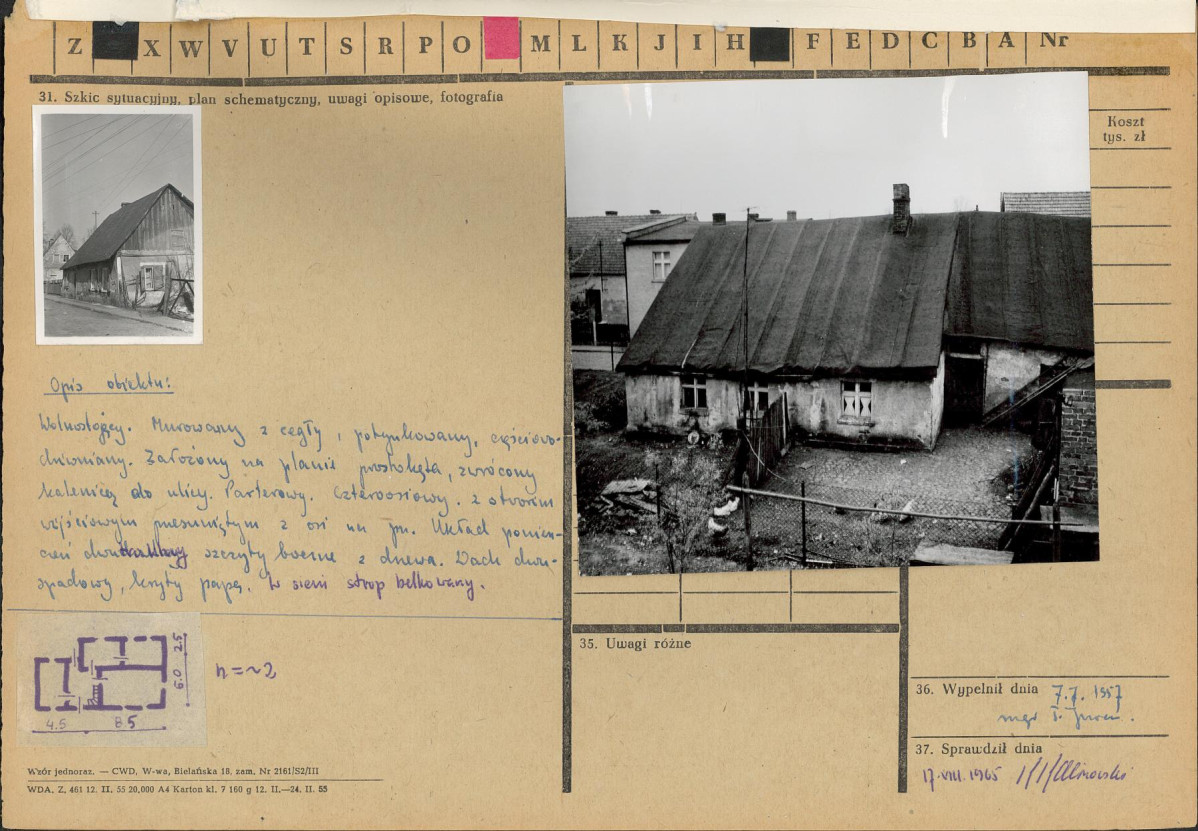 Z X W V U T S R P O M L K J I H F E D C B A Nr
31. Szkic sytuacyjny, plan schematyczny, uwagi opisowe, fotografia
Koszt
tys. zł
Opis obiektu:
Wolnostojący. Murowany z cegły, potynkowany, częściowo
drewniany. Założony na planie prostokąta, zwrócony
kalenicą do ulicy. Parterowy. Czteroosiowy. z otworem
wejściowym przesuniętym z osi na pn. Układ pomiesz-
czeń dwutraktowy szczyty boczne z drewa. Dach dwu-
spadowy, kryty papą. W sieni strop belkowany.
2.5
6.0
4.5 8.5
h=~2
35. Uwagi różne
36. Wypełnił dnia 7.7. 1957
mgr
37. Sprawdził dnia
17.VIII.1965
Wzór jednoraz. — CWD, W-wa, Bielańska 18, zam. Nr 2161/S2/III
WDA, Z. 461 12. II. 55 20,000 A4 Karton kl. 7 160 g 12. II.—24. II. 55